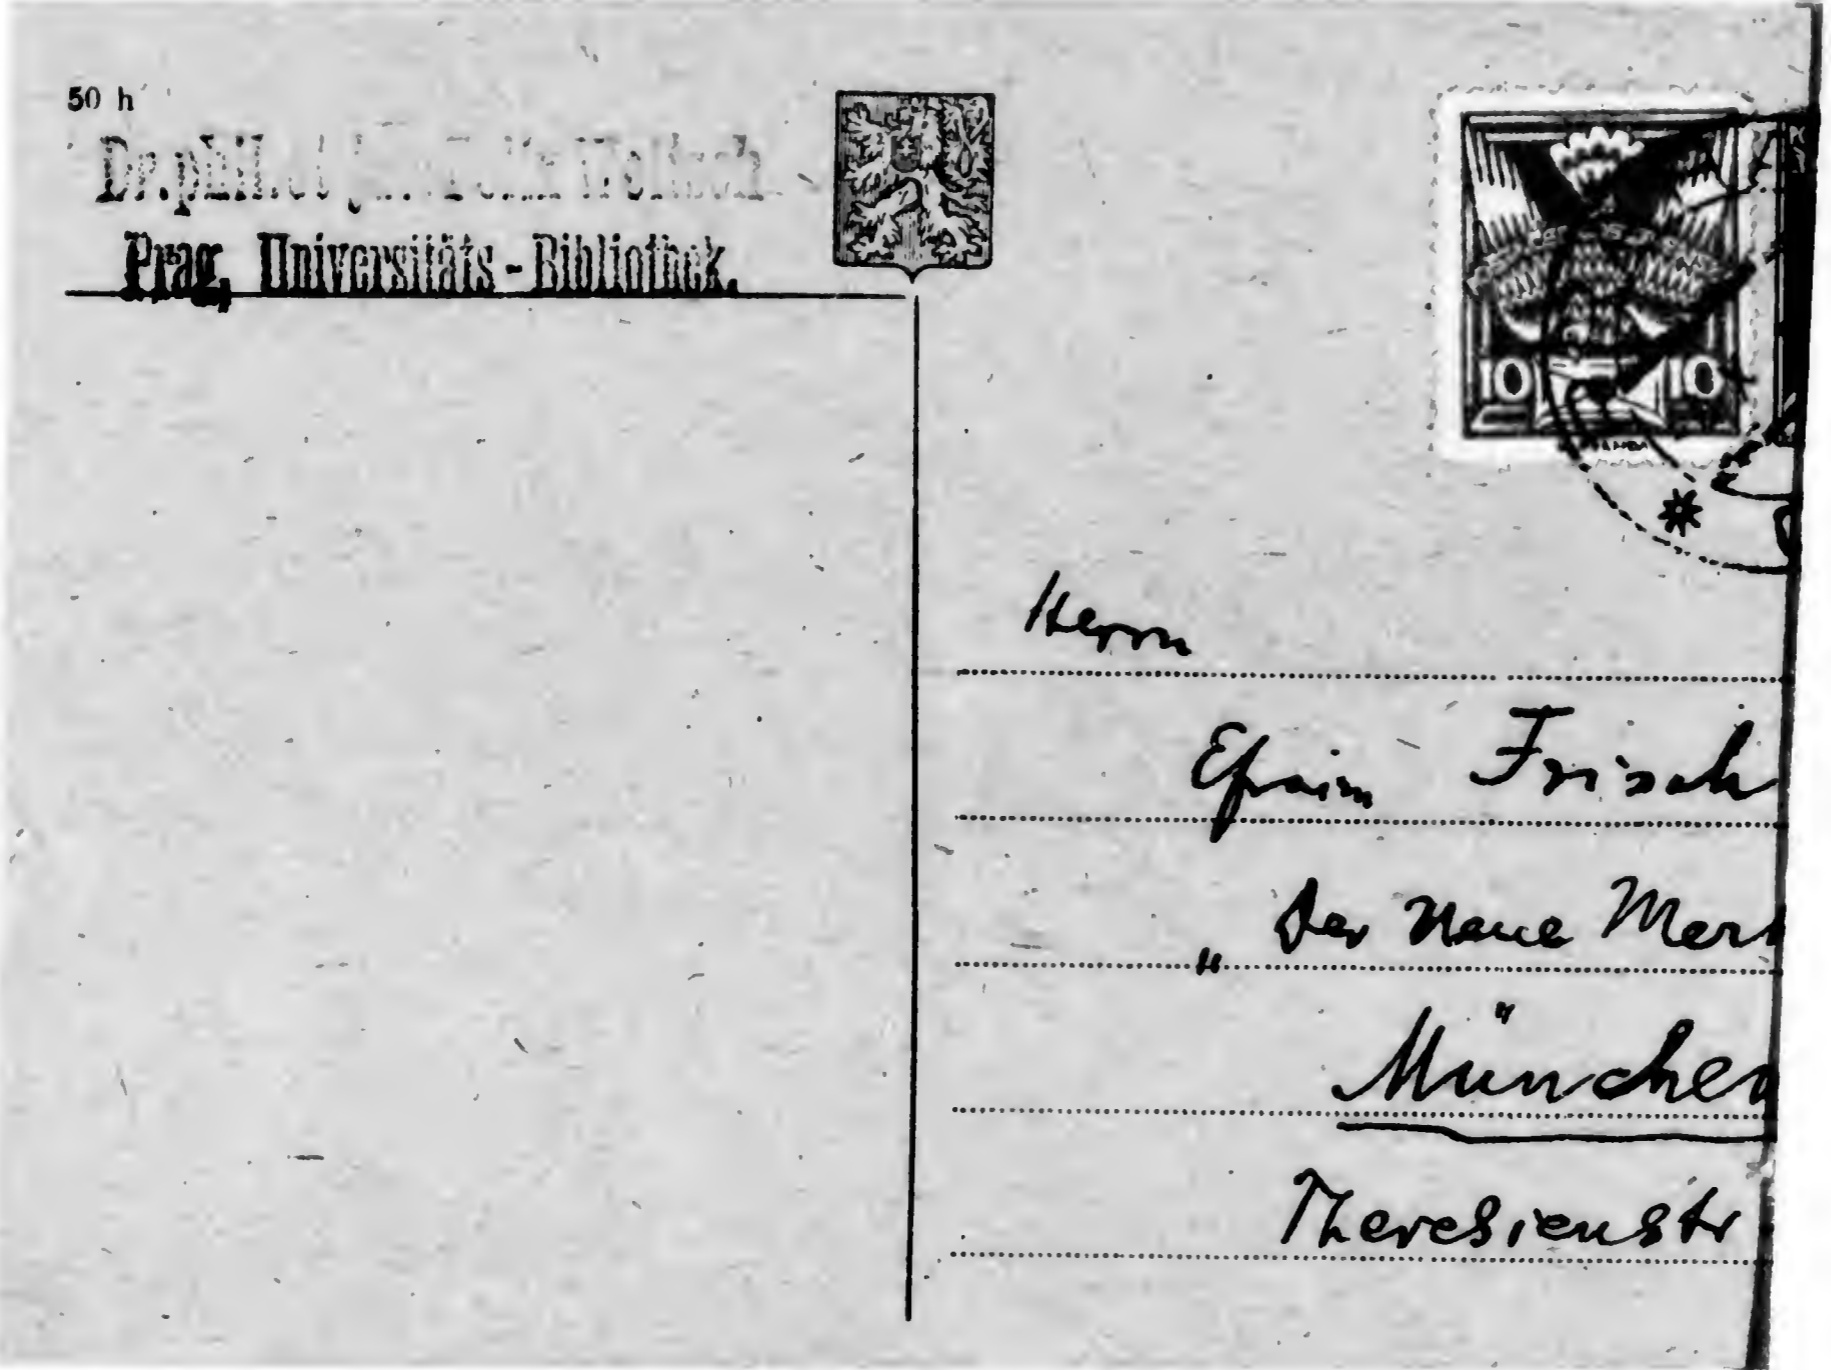 50 h
Dr. phil. et jur. Felix Weltsch
Prag, Universitäts-Bibliothek.
10 10
Herrn
Efraim Frisch
„Der Neue Mer
München
Theresienstr